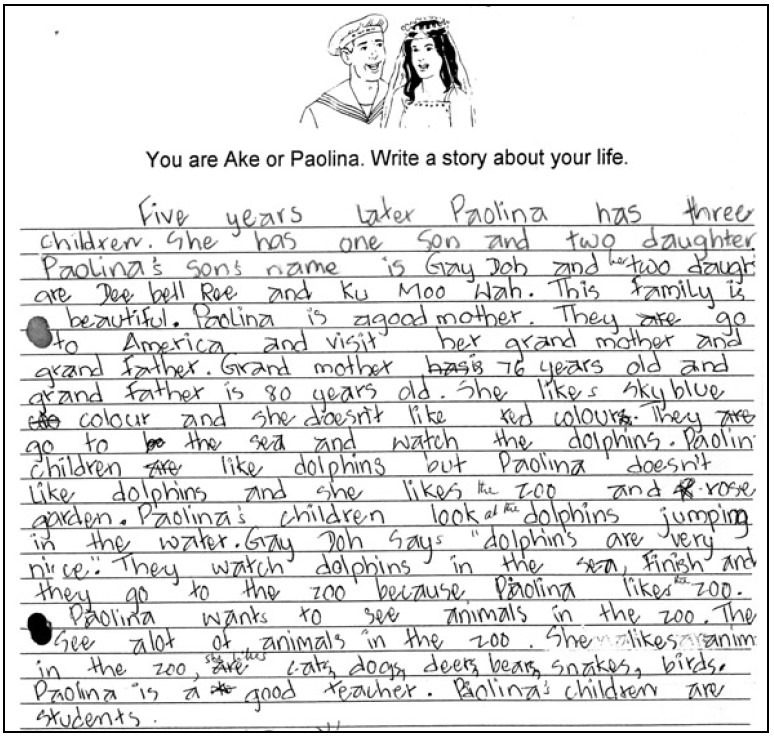 You are Ake or Paolina. Write a story about your life.
Five years later Paolina has three
children. She has one son and two daughter
Paolina's son's name is Gay Doh and her two daugr
are Dee bell Ree and Ku Moo Wah. This family is
beautiful. Paolina is a good mother. They are go
to America and visit her grand mother and
grand father. Grand mother is 76 years old and
grand father is 80 years old. She likes sky blue
colour and she doesn't like red colour. They are
go to the sea and watch the dolphins. Paolin
children are like dolphins but Paolina doesn't
like dolphins and she likes the zoo and rose
garden. Paolina's children look at the dolphins jumping
in the water. Gay Doh says "dolphins are very
nice." They watch dolphins in the sea, finish and
they go to the zoo because Paolina likes the zoo.
Paolina wants to see animals in the zoo. The
see alot of animals in the zoo. She likes anim
in the zoo, she likes cats, dogs, deers, bears, snakes, birds.
Paolina is a good teacher. Paolina's children are
students.